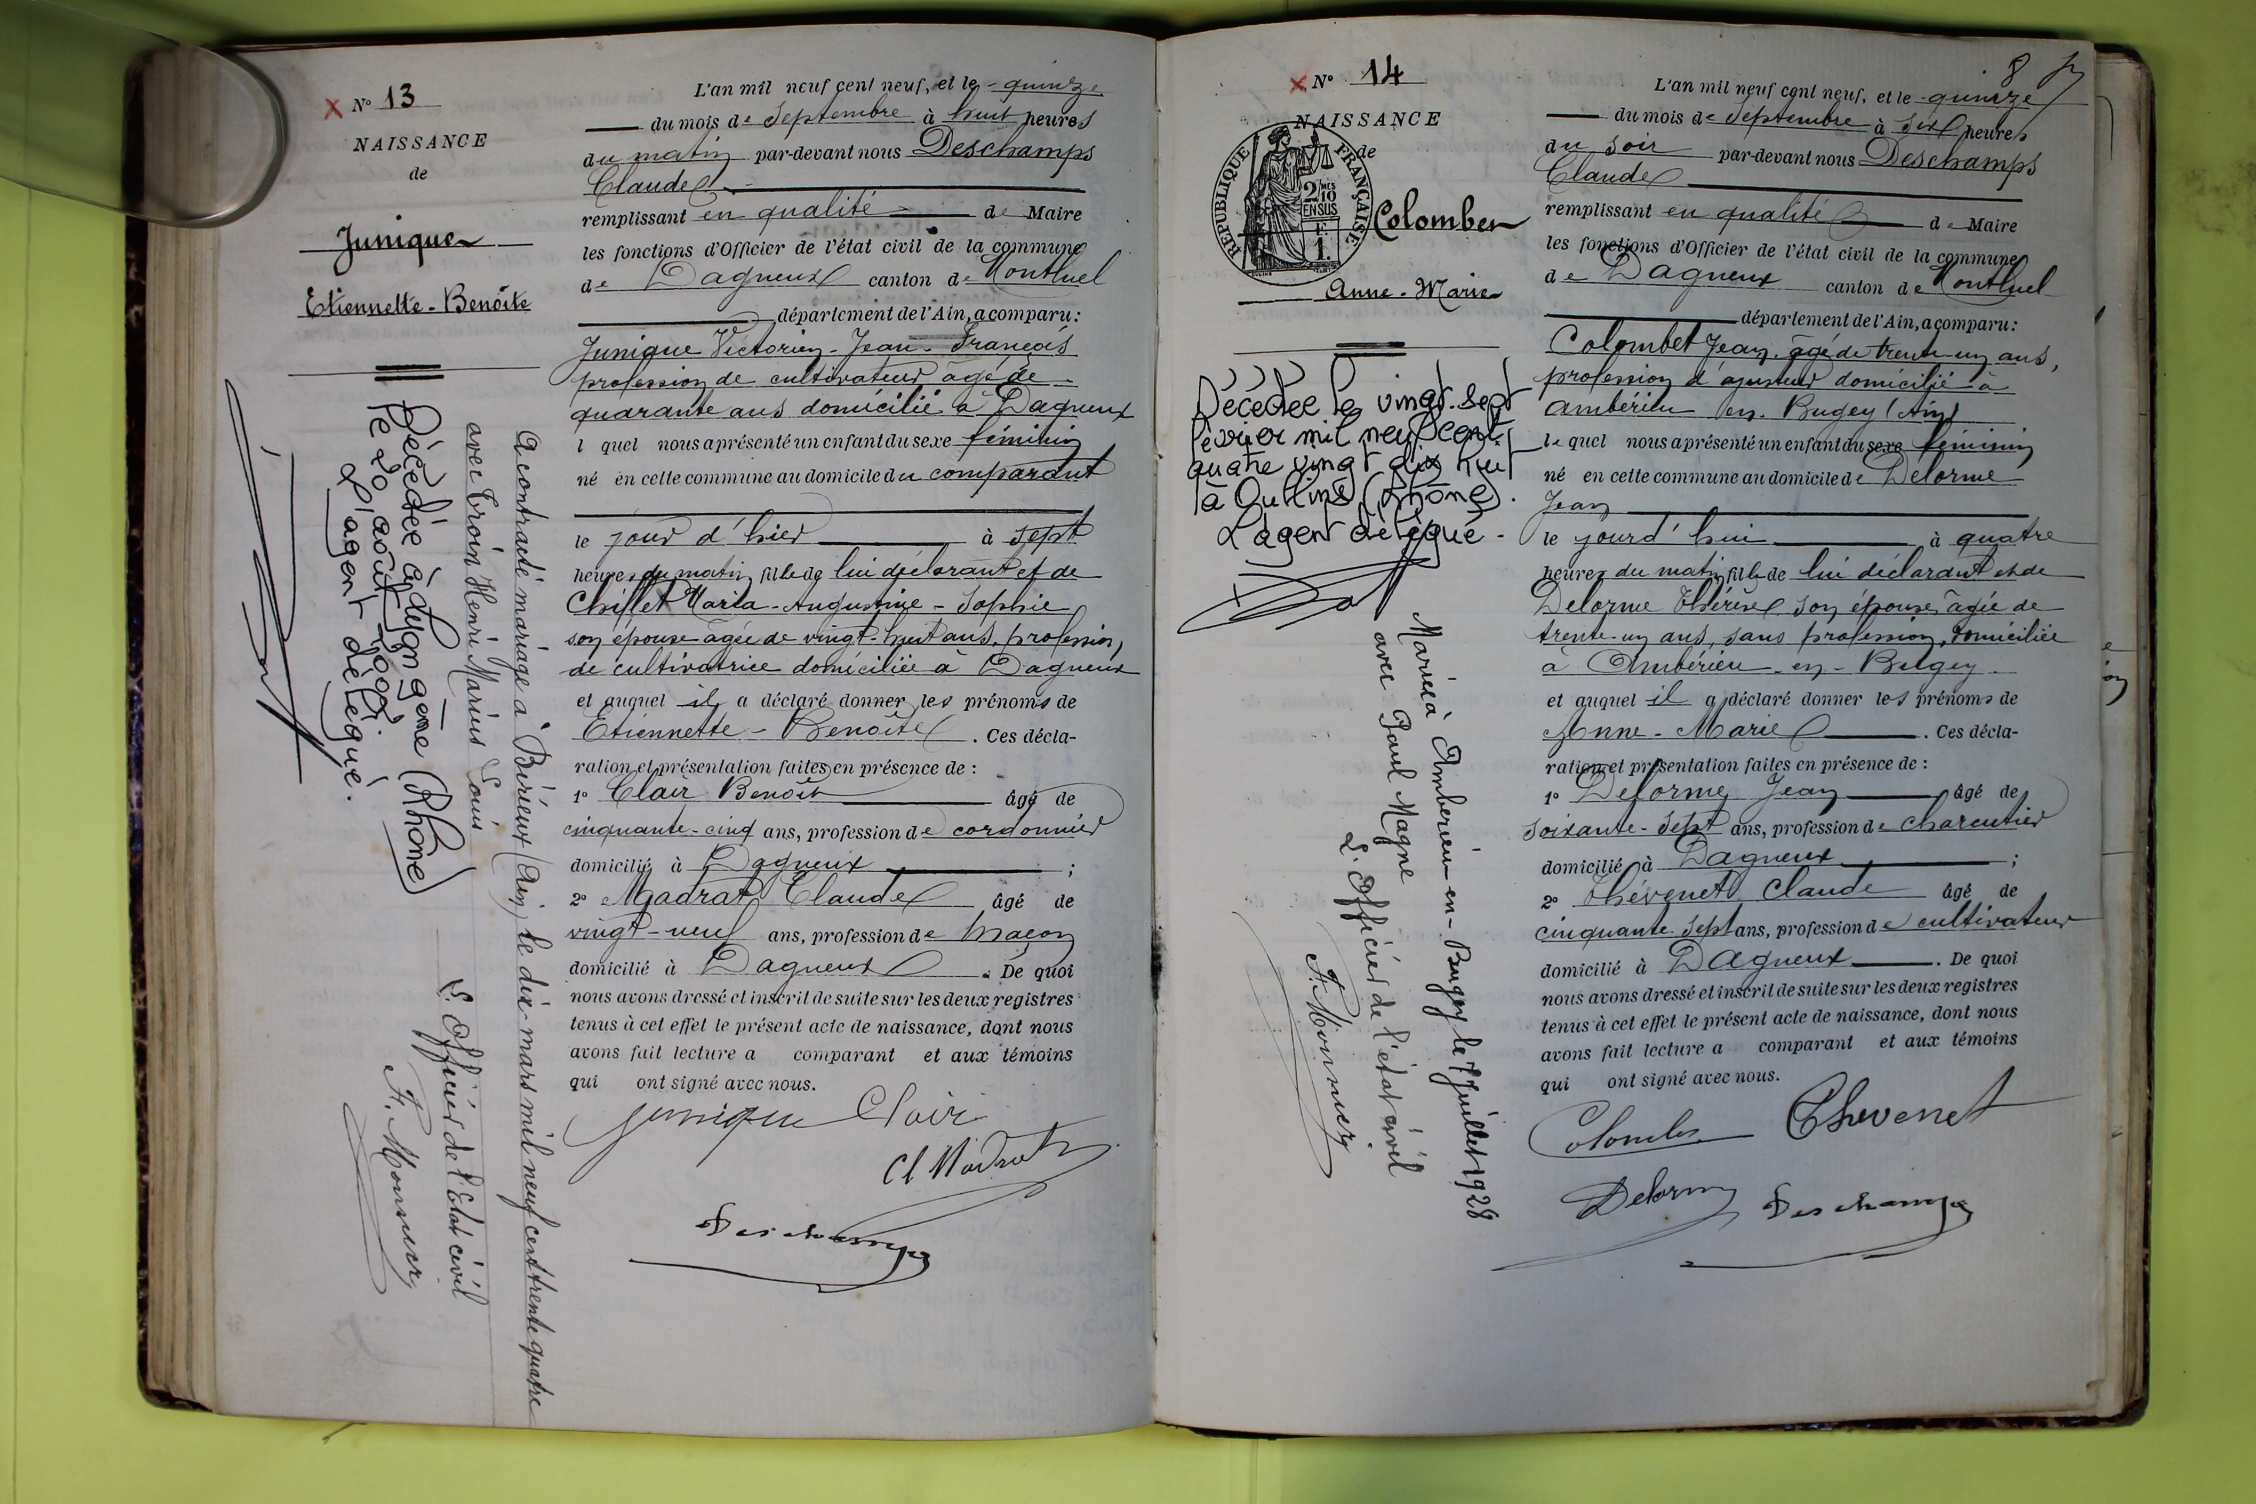 N° 13
NAISSANCE
de
Junique
Etiennette - Benoîte
Décédée à Lyon 9ème (Rhône)
le 20 août 2002.
L'agent délégué.
A contracté mariage à Birieux (Ain) le dix mars mil neuf cent trente quatre
avec Troin Henri Marius Louis
L'Officier de l'Etat civil
F. Monnery
L'an mil neuf cent neuf, et le quinze
du mois de Septembre à huit heures
du matin par-devant nous Deschamps
Claude
remplissant en qualité de Maire
les fonctions d'Officier de l'état civil de la commune
de Dagneux canton de Montluel
département de l'Ain, a comparu :
Junique Victorien - Jean - François
profession de cultivateur âgé de
quarante ans domicilié à Dagneux
l quel nous a présenté un enfant du sexe féminin
né en cette commune au domicile du comparant
le jour d'hier à sept
heures du matin, fille de lui déclarant et de
Chillet Maria - Augustine - Sophie
son épouse âgée de vingt-huit ans, profession
de cultivatrice domiciliée à Dagneux
et auquel il a déclaré donner les prénoms de
Etiennette - Benoîte . Ces décla-
ration et présentation faites en présence de :
1° Clair Benoît âgé de
cinquante-cinq ans, profession de cordonnier
domicilié à Dagneux ;
2° Madrat Claude âgé de
vingt-neuf ans, profession de maçon
domicilié à Dagneux . De quoi
nous avons dressé et inscrit de suite sur les deux registres
tenus à cet effet le présent acte de naissance, dont nous
avons fait lecture a comparant et aux témoins
qui ont signé avec nous.
Junique Clair
Cl Madrat
Deschamps
8
N° 14
NAISSANCE
de
RÉPUBLIQUE FRANÇAISE
2/10 MES
EN SUS
1 F.
Colomber
Anne - Marie
Décédée le vingt-sept
février mil neuf cent
quatre vingt dix huit
à Oullins (Rhône).
L'agent délégué -
Mariée à Ambérieu-en-Bugey le 7 juillet 1928
avec Paul Magne
L'Officier de l'état civil
F. Monnery
L'an mil neuf cent neuf, et le quinze
du mois de Septembre à six heures
du soir par-devant nous Deschamps
Claude
remplissant en qualité de Maire
les fonctions d'Officier de l'état civil de la commune
de Dagneux canton de Montluel
département de l'Ain, a comparu :
Colombet Jean, âgé de trente-un ans,
profession d'ajusteur domicilié à
Ambérieu en Bugey (Ain)
le quel nous a présenté un enfant du sexe féminin
né en cette commune au domicile de Delorme
Jean
le jourd'hui à quatre
heures du matin, fille de lui déclarant et de
Delorme Thérèse son épouse, âgée de
trente-un ans, sans profession, domiciliée
à Ambérieu - en - Bugey.
et auquel il a déclaré donner les prénoms de
Anne - Marie . Ces décla-
ration et présentation faites en présence de :
1° Delorme Jean âgé de
soixante-sept ans, profession de charcutier
domicilié à Dagneux ;
2° Thévenet Claude âgé de
cinquante sept ans, profession de cultivateur
domicilié à Dagneux . De quoi
nous avons dressé et inscrit de suite sur les deux registres
tenus à cet effet le présent acte de naissance, dont nous
avons fait lecture a comparant et aux témoins
qui ont signé avec nous.
Colomber Thevenet
Delorme Deschamps